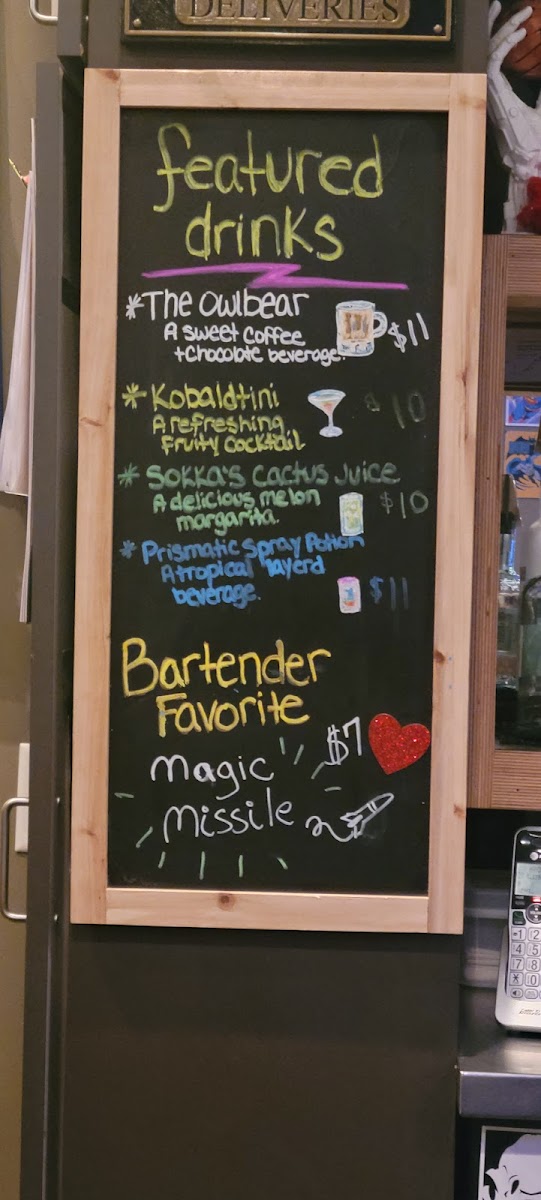 DELIVERIES
featured
drinks
*The Owlbear
A sweet coffee
+chocolate beverage. $11
*Kobaldtini $10
A refreshing
fruity cocktail
*Sokka's Cactus Juice
A delicious melon $10
margarita.
*Prismatic Spray Potion
A tropical layerd
beverage. $11
Bartender
Favorite
Magic $7
Missile